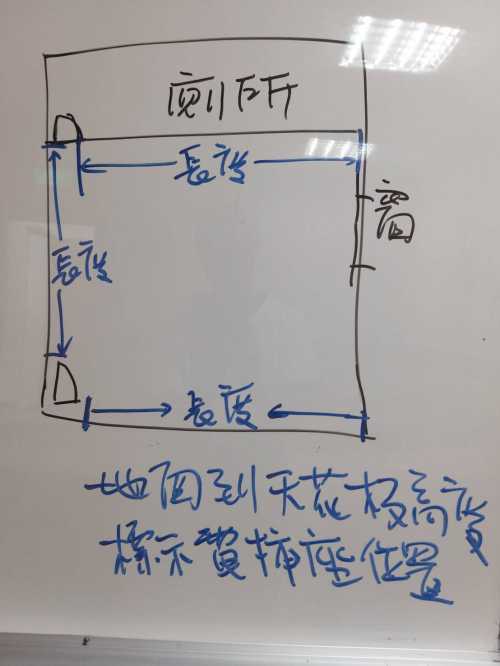 廁所
長度
窗
長度
長度
地面到天花板高度
標示
插座位置